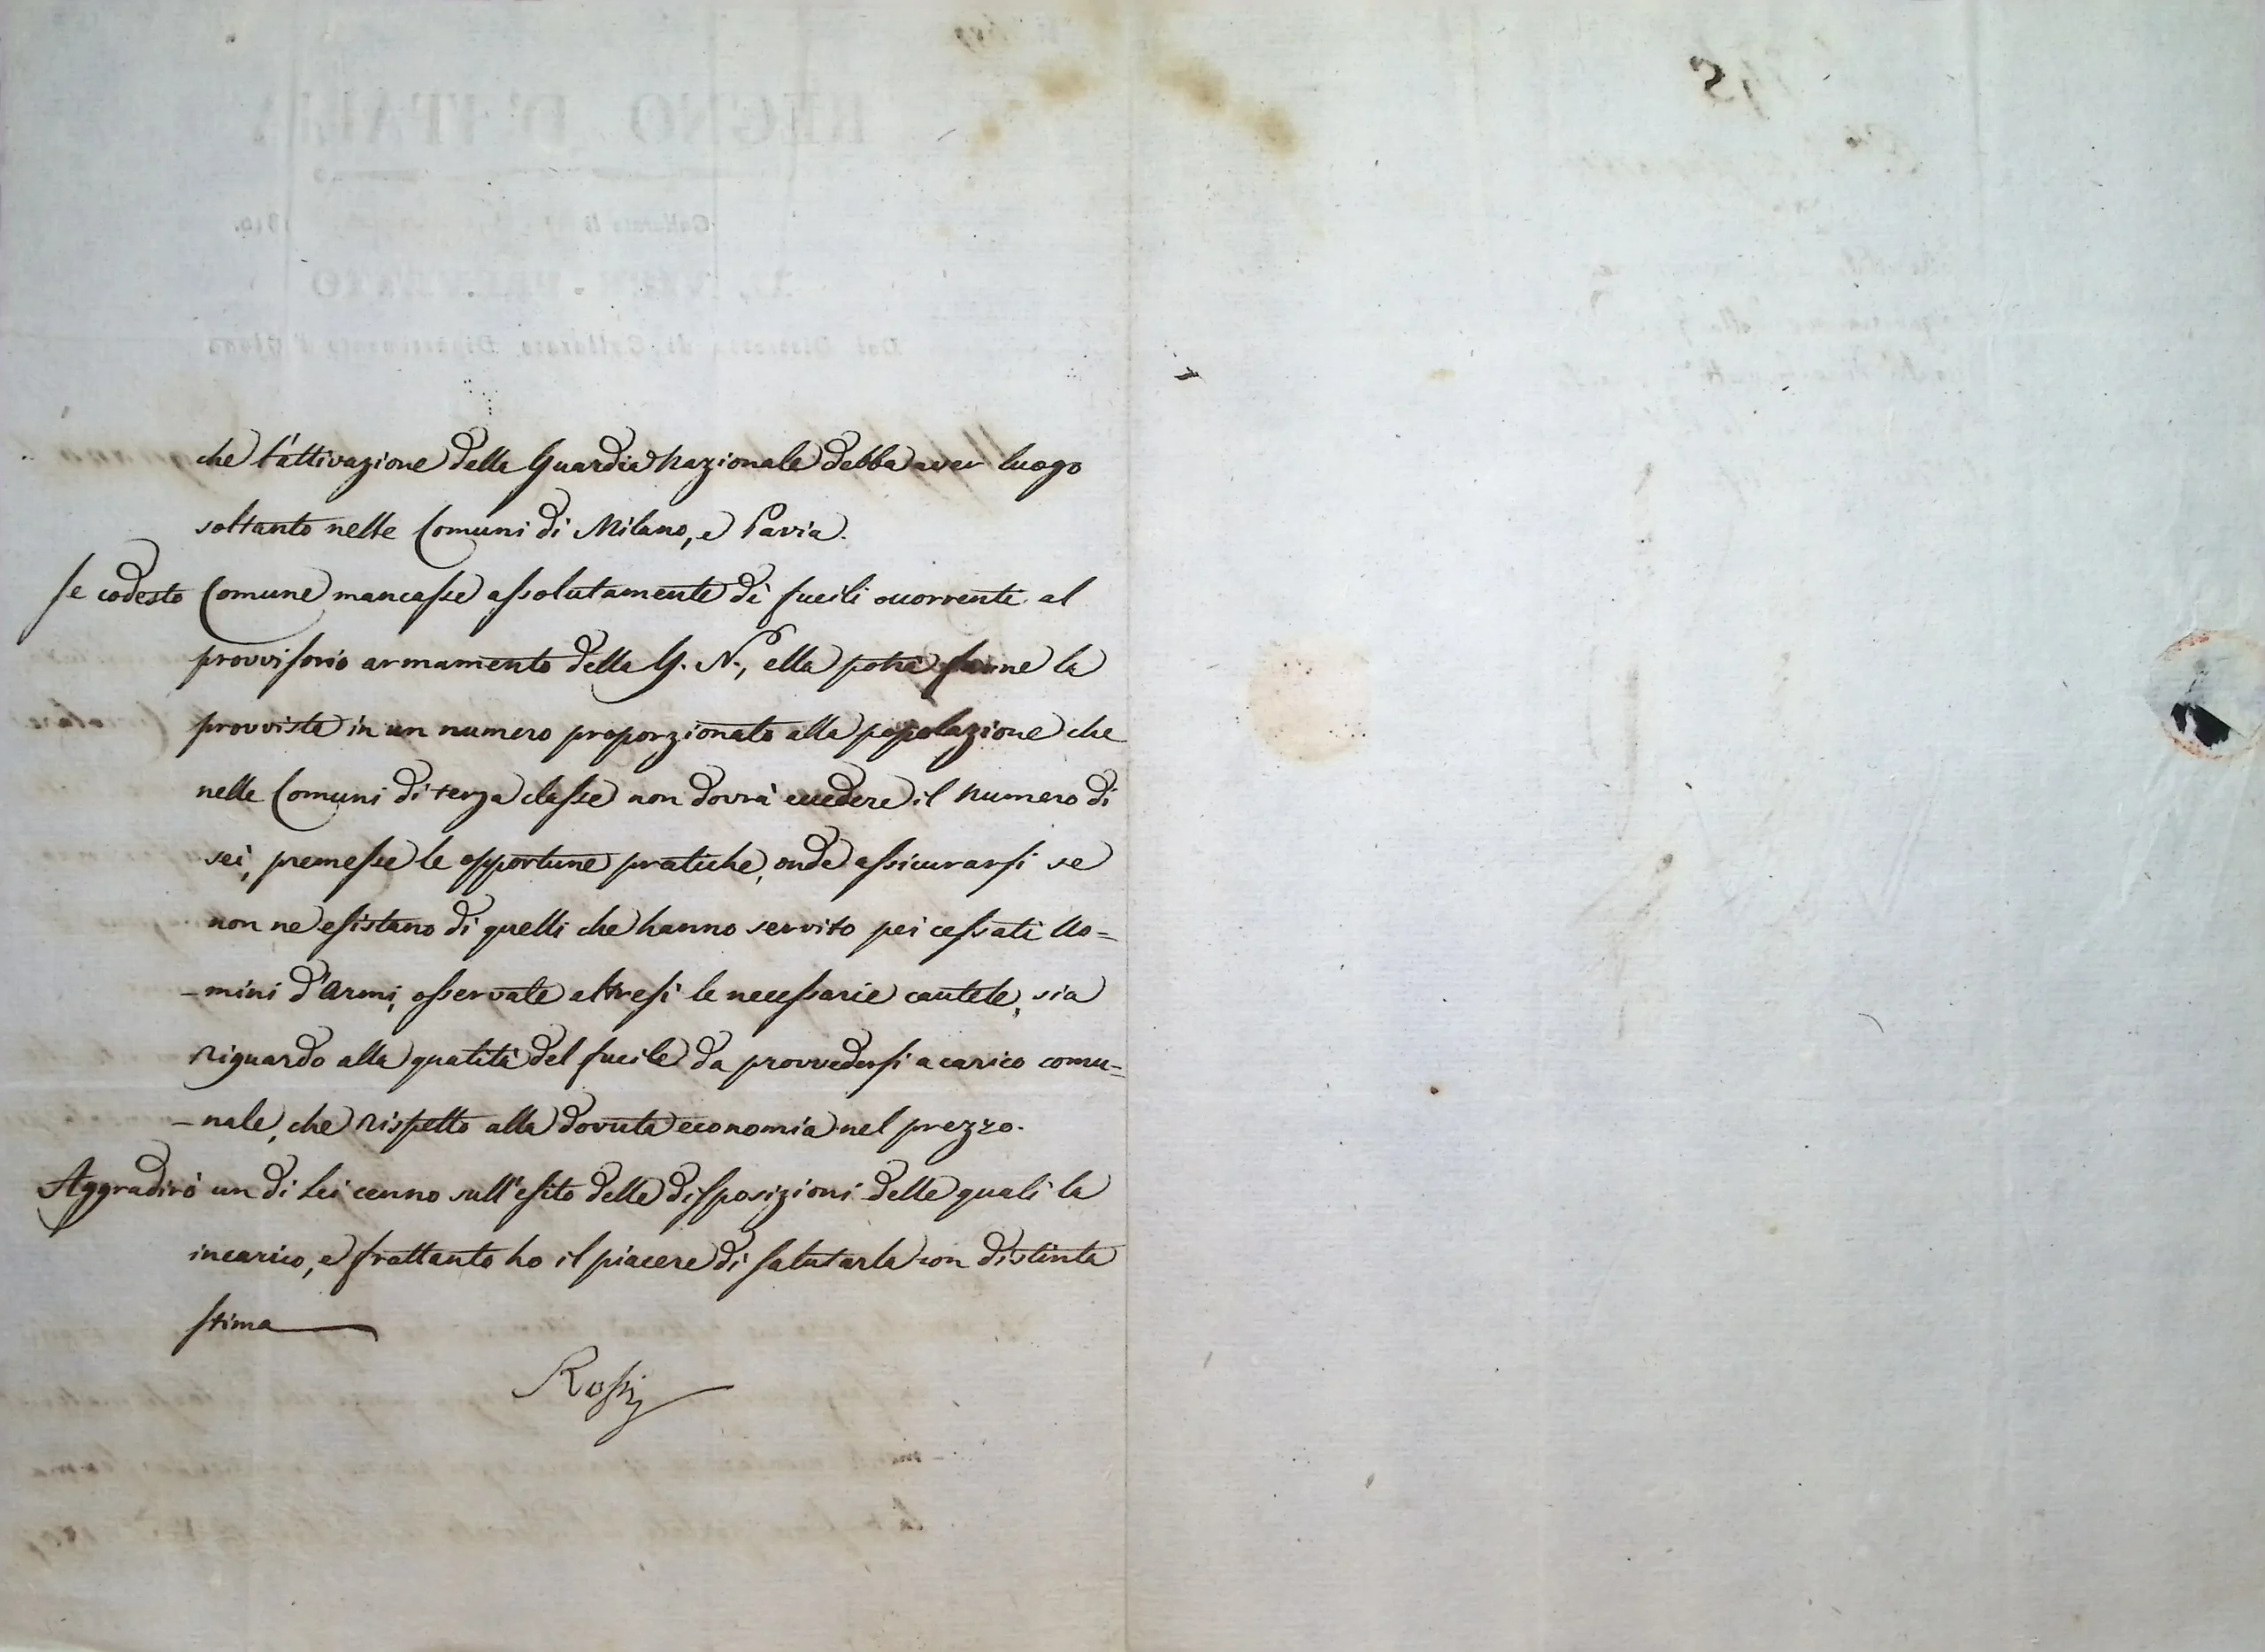 che l'attivazione della Guardia Nazionale debba aver luogo
soltanto nelle Comuni di Milano, e Pavia.
Se codesto Comune mancasse assolutamente di fucili occorrente al
provvisorio armamento della G. N., ella potrà farne la
provvista in un numero proporzionato alla popolazione che
nelle Comuni di terza classe non dovrà eccedere il numero di
sei, premesse le opportune pratiche, onde assicurarsi se
non ne esistano di quelli che hanno servito pei cessati Uo=
-mini d'Armi, osservate altresì le necessarie cautele, sia
riguardo alla qualità del fucile da provvedersi a carico comu=
-nale, che rispetto alla dovuta economia nel prezzo.
Aggradirò un di Lei cenno sull'esito delle disposizioni delle quali la
incarico, e frattanto ho il piacere di salutarla con distinta
stima
Rossi